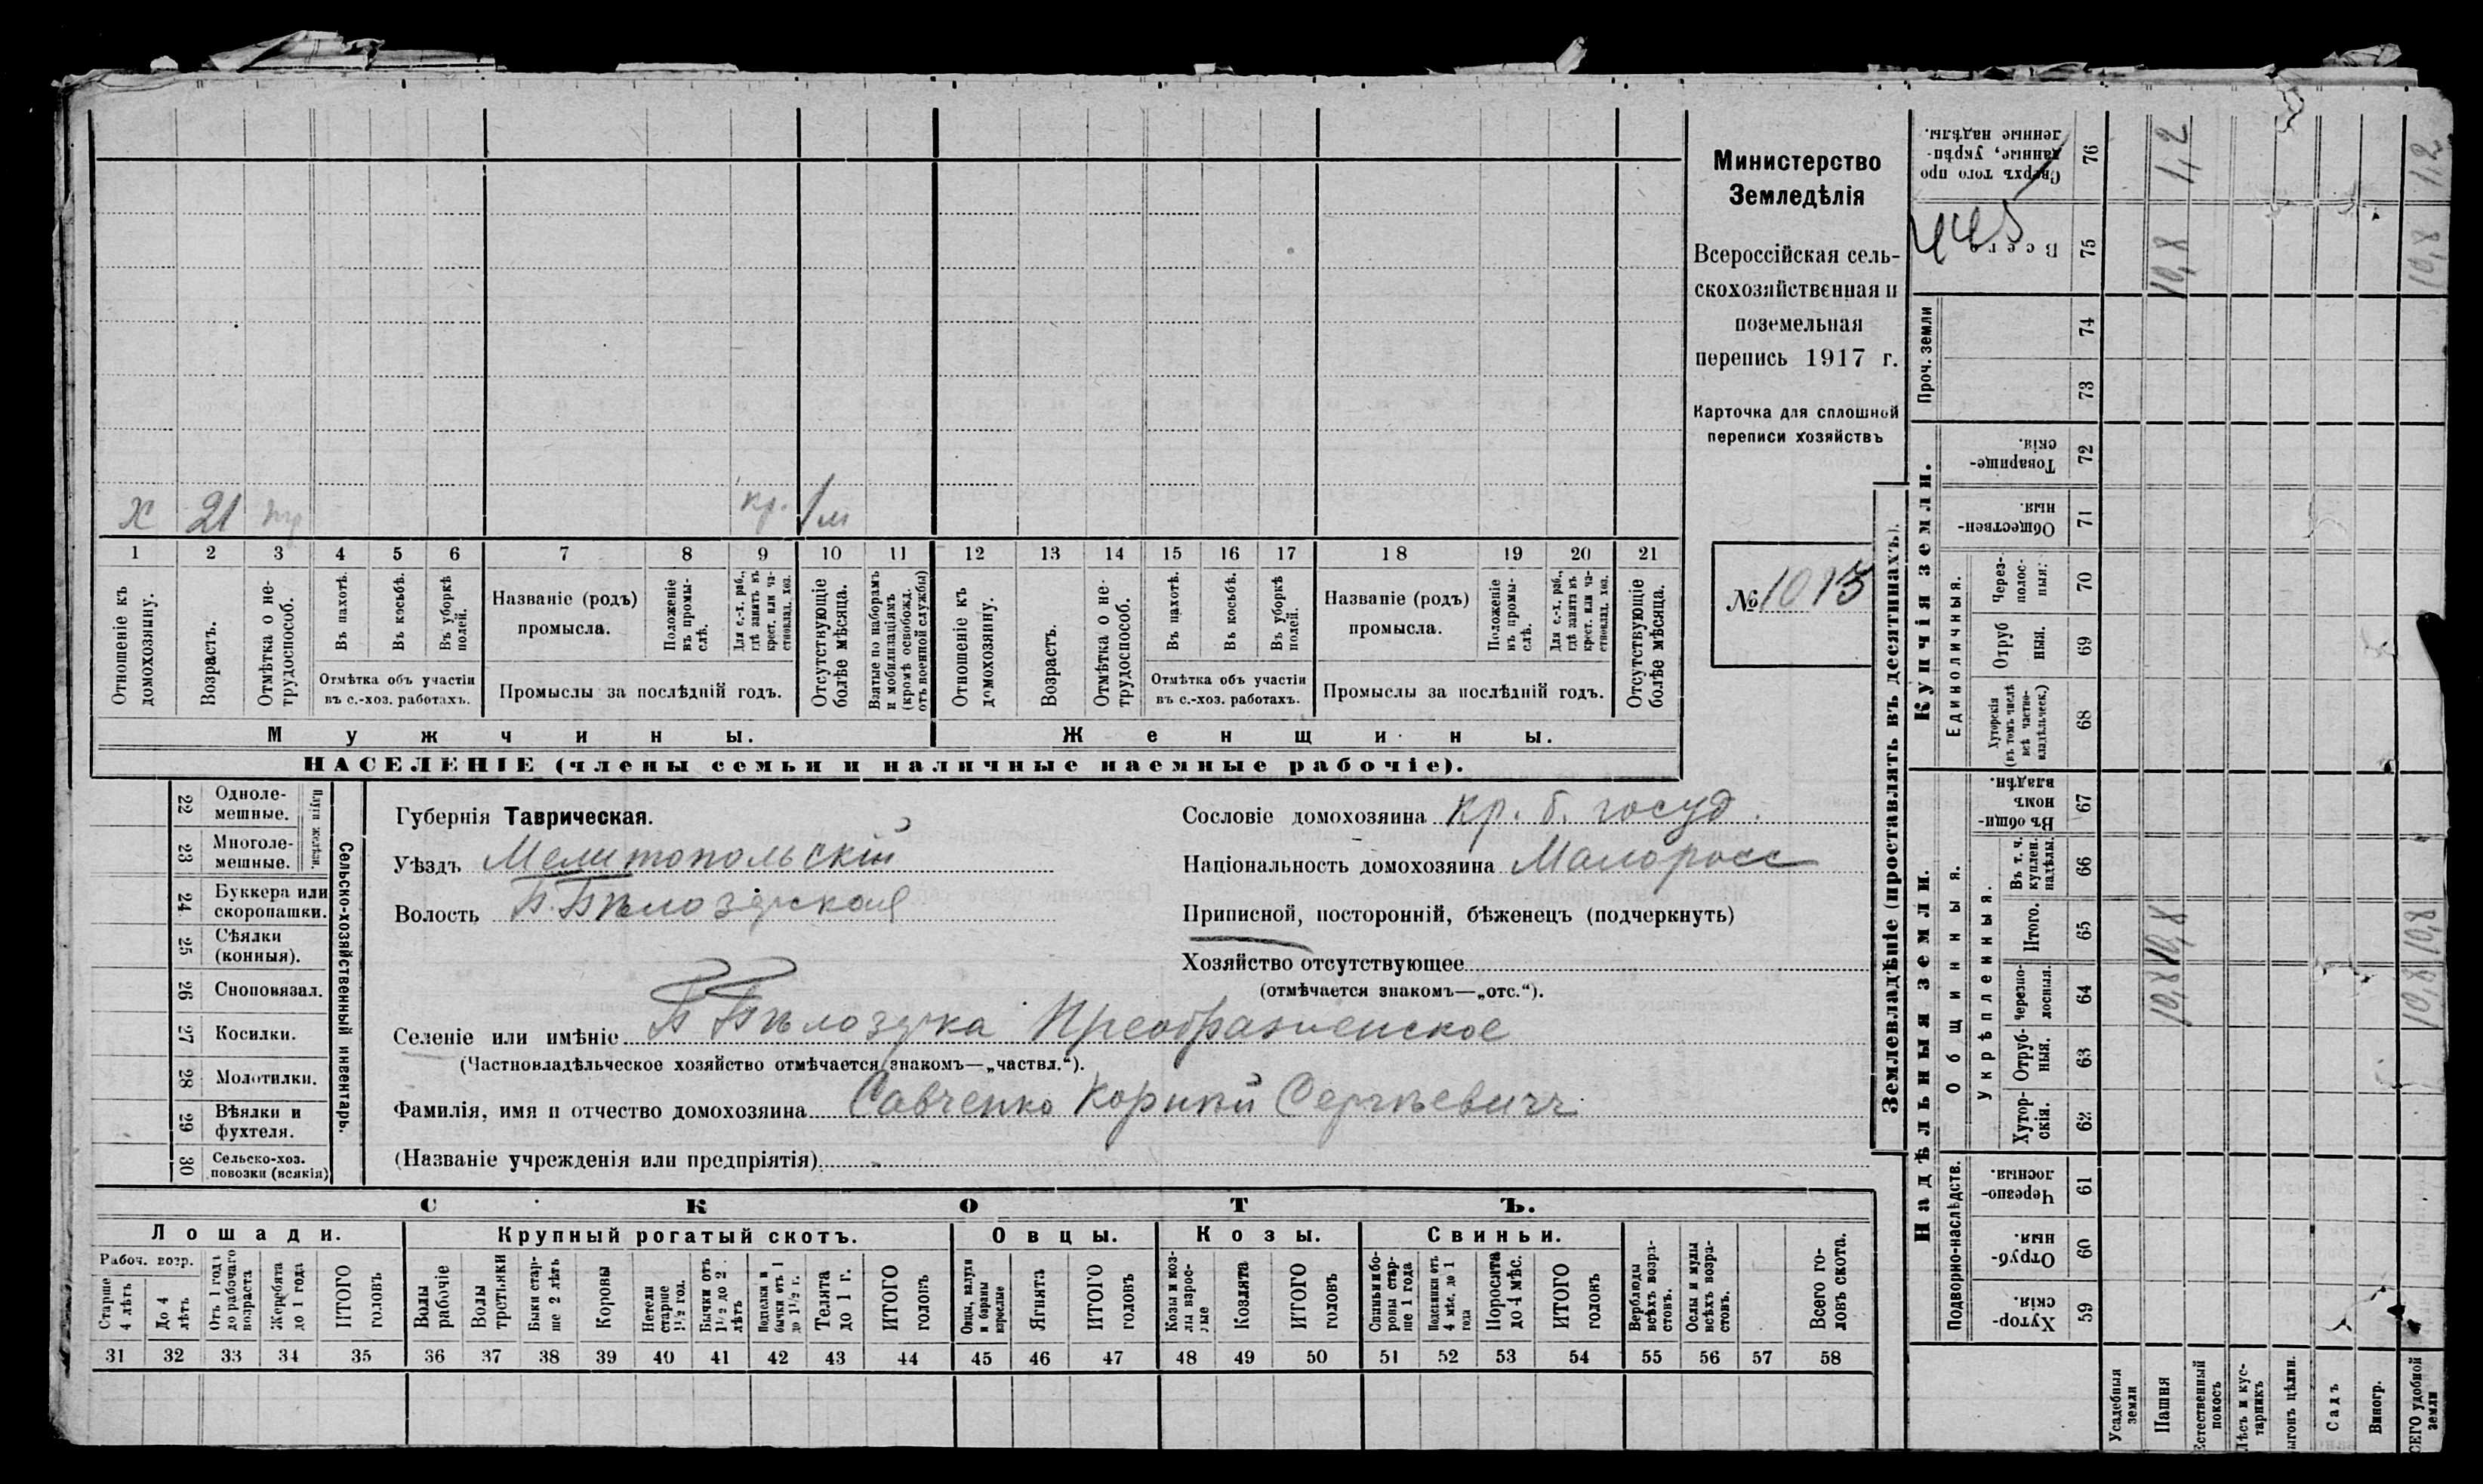 Министерство
Земледѣлія
Всероссійская сель-
скохозяйственная и
поземельная
перепись 1917 г.
Карточка для сплошной
переписи хозяйствъ
№ 1013
х 21 кр. 1/м
1 2 3 4 5 6 7 8 9 10 11 12 13 14 15 16 17 18 19 20 21
Отношеніе къ домохозяину.
Возрастъ.
Отмѣтка о не-трудоспособ.
Въ пахотѣ.
Въ косьбѣ.
Въ уборкѣ полей.
Отмѣтка объ участіи
въ с.-хоз. работахъ.
Названіе (родъ)
промысла.
Положеніе въ промы-слѣ.
Для с.-х. раб., гдѣ занятъ въ крест. или ча-стновлад. хоз.
Промыслы за послѣдній годъ.
Отсутствующіе болѣе мѣсяца.
Взятые по наборамъ и мобилизаціямъ (кромѣ освобожд. отъ военной службы)
Отношеніе къ домохозяину.
Возрастъ.
Отмѣтка о не-трудоспособ.
Въ пахотѣ.
Въ косьбѣ.
Въ уборкѣ полей.
Отмѣтка объ участіи
въ с.-хоз. работахъ.
Названіе (родъ)
промысла.
Положеніе въ промы-слѣ.
Для с.-х. раб., гдѣ занята въ крест. или ча-стновлад. хоз.
Промыслы за послѣдній годъ.
Отсутствующіе болѣе мѣсяца.
Мужчины.
Женщины.
НАСЕЛЕНІЕ (члены семьи и наличные наемные рабочіе).
Сельско-хозяйственный инвентарь.
Плуги желѣзн.
22 Одноле-мешные.
23 Многоле-мешные.
24 Буккера или скоропашки.
25 Сѣялки (конныя).
26 Сноповязал.
27 Косилки.
28 Молотилки.
29 Вѣялки и фухтеля.
30 Сельско-хоз. повозки (всякія)
Губернія Таврическая.
Уѣздъ Мелитопольскій
Волость Б. Бѣлозерская
Сословіе домохозяина кр. б. госуд.
Національность домохозяина Малоросс
Приписной, посторонній, бѣженецъ (подчеркнуть)
Хозяйство отсутствующее
(отмѣчается знакомъ—„отс.“).
Селеніе или имѣніе Б Бѣлозерка Преображенское
(Частновладѣльческое хозяйство отмѣчается знакомъ—„частвл.“).
Фамилія, имя и отчество домохозяина Савченко Корний Сергѣевичъ
(Названіе учрежденія или предпріятія)
СКОТЪ.
Лошади.
Крупный рогатый скотъ.
Овцы.
Козы.
Свиньи.
Рабоч. возр.
Старше 4 лѣтъ
До 4 лѣтъ
Отъ 1 годъ до рабочаго возраста
Жеребята до 1 года
ИТОГО головъ
Волы рабочіе
Волы третьяки
Быки стар-ше 2 лѣтъ
Коровы
Нетели старше 1½ год.
Бычки отъ 1½ до 2 лѣтъ
Подтелки и бычки отъ 1 до 1½ г.
Телята до 1 г.
ИТОГО головъ
Овцы, валухи и бараны взрослые
Ягнята
ИТОГО головъ
Козы и коз-лы взрос-лые
Козлята
ИТОГО головъ
Свиньи и бо-ровы стар-ше 1 года
Подсвинки отъ 4 мѣс. до 1 года
Поросята до 4 мѣс.
ИТОГО головъ
Верблюды всѣхъ возра-стовъ.
Ослы и мулы всѣхъ возра-стовъ.
Всего го-ловъ скота.
31 32 33 34 35 36 37 38 39 40 41 42 43 44 45 46 47 48 49 50 51 52 53 54 55 56 57 58
Землевладѣніе (проставлять въ десятинахъ).
Надѣльныя земли.
Купчія земли.
Проч. земли
Подворно-наслѣдств.
Общинныя.
Укрѣпленныя.
Единоличныя.
Сверхъ того про данные, укрѣп-ленные надѣлы. 76 1,2 1,2
Всего 75 10,8 10,8
74
73
Товарище-скія. 72
Обществен-ныя. 71
Через-полос-ныя. 70
Отруб ныя. 69
Хуторскія (въ томъ числѣ всѣ частно-владѣльческ.) 68
Въ общи-номъ владѣн. 67
Въ т. ч. куплен. надѣлы. 66
Итого. 65 10,8 10,8
Черезпо-лосныя. 64 10,8 10,8
Отруб-ныя. 63
Хутор-скія. 62
Черезпо-лосныя. 61
Отруб-ныя. 60
Хутор-скія. 59
Усадебныя земли
Пашня
Естественный покосъ
Лѣсъ и кус-тарникъ
ыгонъ цѣлин.
Садъ
Виногр.
СЕГО удобной земли